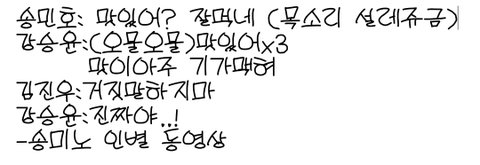 송민호: 맛있어? 잘먹네 (목소리 설레쥬금)
강승윤:(오물오물)맛있어x3
맛이아주 기가맥혀
김진우:거짓말하지마
강승윤:진짜야..!
-송미노 인별 동영상